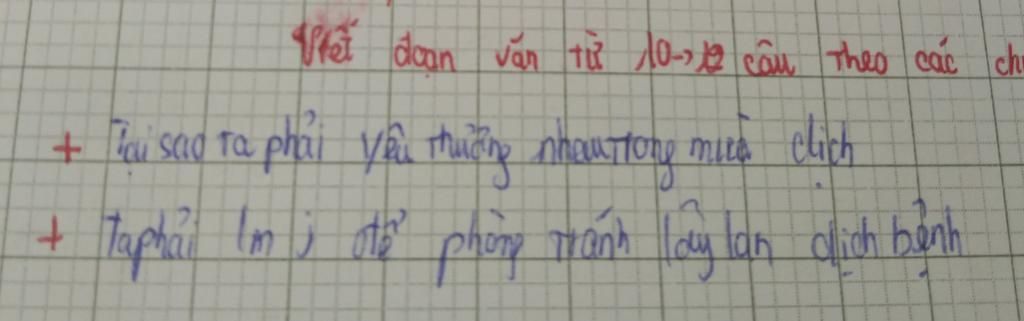 Viết đoạn văn từ 10->12 câu theo các ch
+ Tại sao ta phải yêu thương nhau trong mùa dịch
+ Ta phải lm j để phòng tránh lây lan dịch bệnh